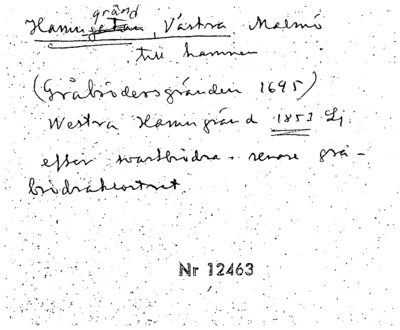 gränd
Hamngatan, Västra Malmö
till hamnen
(Gråbrödersgränden 1695)
Westra Hamngränd 1853 Lj
efter svartbrödra- senare grå-
brödraklostret.
Nr 12463